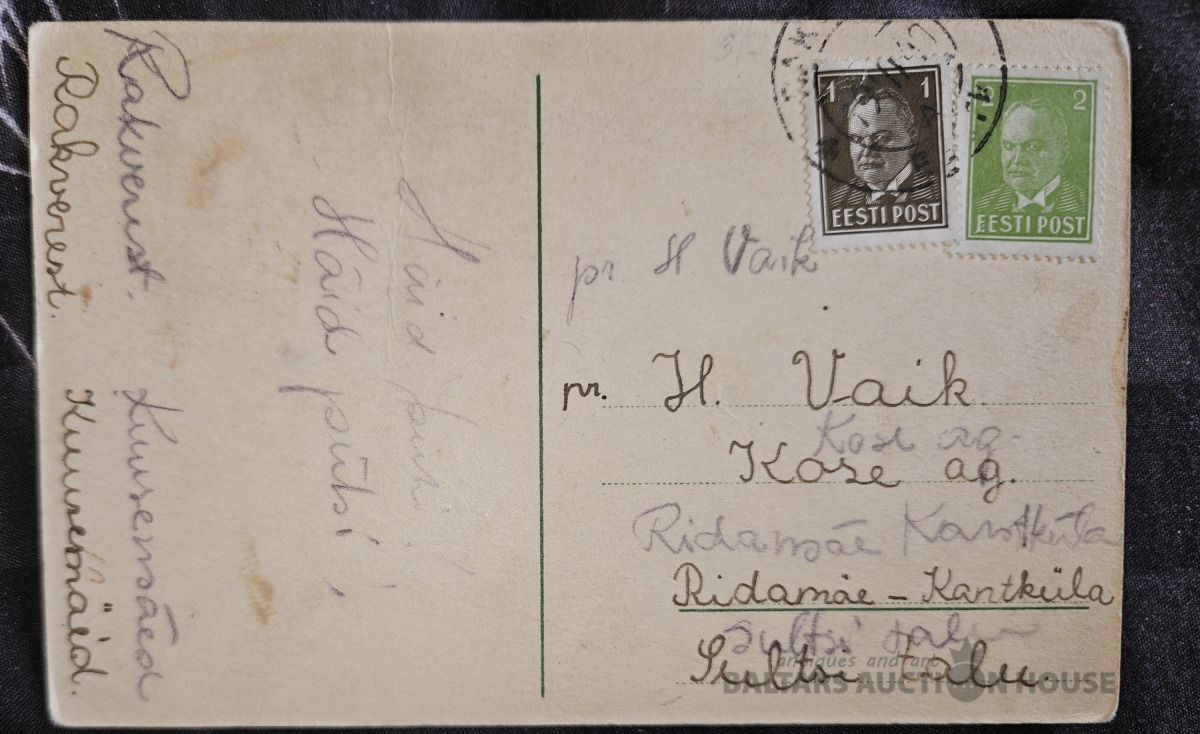 Rakverest.
Rakverest.
Kuusemäed
Kuusemäed.
Häid
Häid pühi!
1 1
EESTI POST
2 2
EESTI POST
pr. H Vaik
pr. H. Vaik
Kose ag.
Kose ag.
Ridamäe Kantküla
Ridamäe - Kantküla
Sultsi talu
Sultsi talu.
antiques and art
BALTARS AUCTION HOUSE